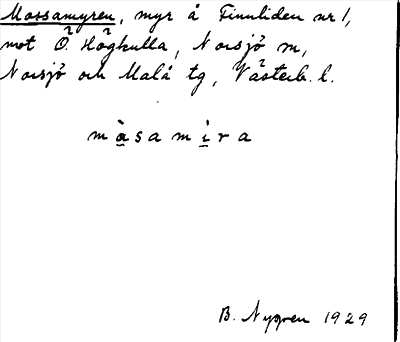 Mossamyren, myr å Finnliden nr 1,
mot Ö. Högkulla, Norsjö sn,
Norsjö och Malå tg, Västerb. l.
må̀sami̇̀ra
B. Nygren 1929